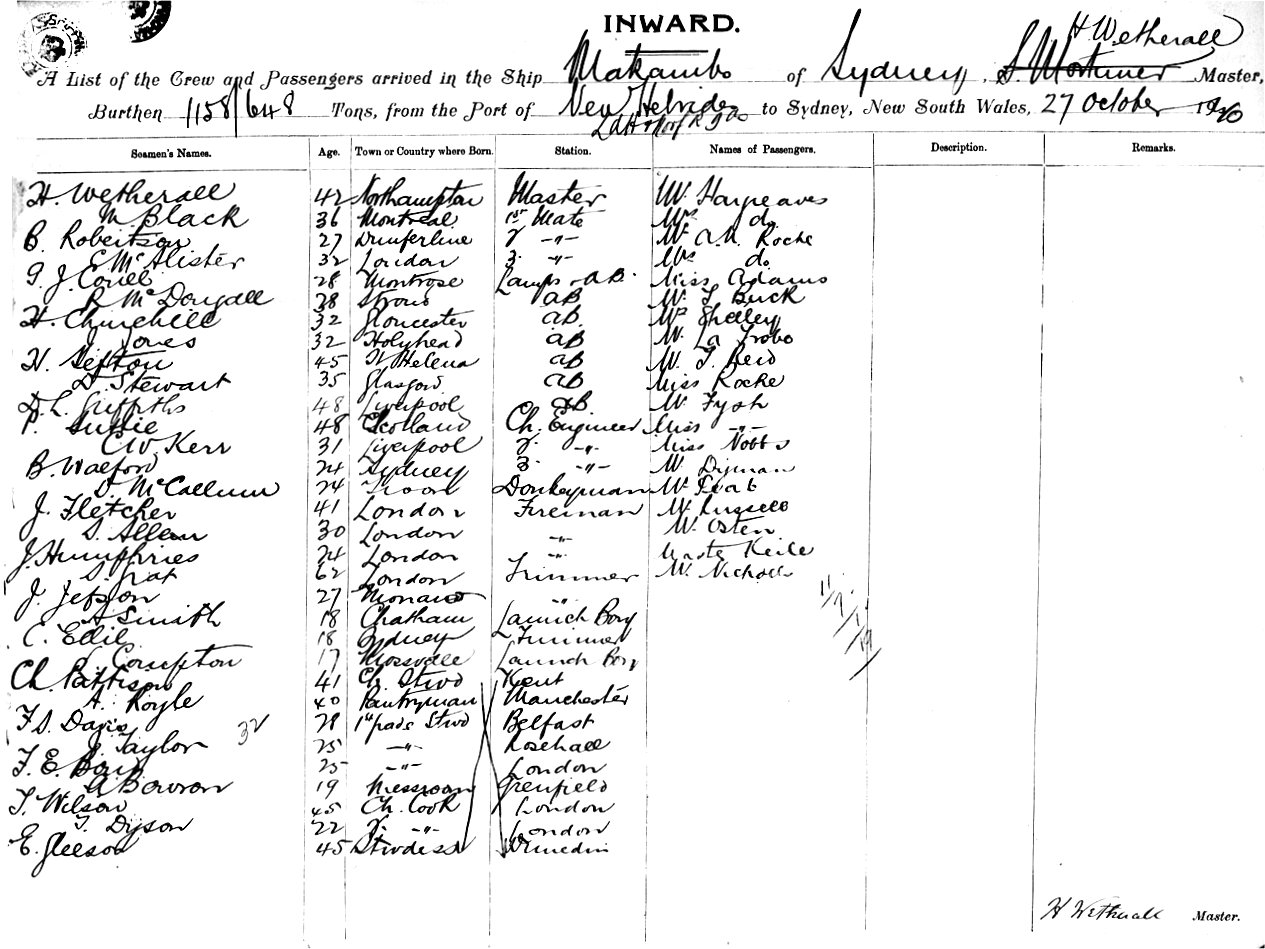 INWARD.
H Wetherall
A List of the Crew and Passengers arrived in the Ship Makambo of Sydney, S. Mortimer Master,
Burthen 1158/648 Tons, from the Port of New Hebrides to Sydney, New South Wales, 27 October 1910
Seamen's Names. Age. Town or Country where Born. Station. Names of Passengers. Description. Remarks.
H. Wetherall 42 Northampton Master Mr. Hargreaves
M. Black 36 Montreal 1st Mate Mrs do.
B. Robertson 27 Dunferline 2 -"- Mr A.M. Roche
E McAlister 32 London 3. -"- Mrs do.
J. 28 Montrose Lamps & AB. Miss Adams
R McDougall 28 AB Mr. Buck
H. Churchill 32 Gloucester AB. Mr Shelley
J. Jones 32 Holyhead AB Mr. La Trobe
H. Sefton 45 St Helena AB Mr. Reid
D. Stewart 35 Glasgow AB Miss Roche
D. L. Griffiths 48 Liverpool AB. Mr Fysh
48 Scotland Ch. Engineer Miss -"-
C.W. Kerr 31 Liverpool 2. -"- Miss Nobbs
B. Walford 24 Sydney 3. -"- Mr. Dyman
D. McCallum 24 Troon Donkeyman Mr
J. Fletcher 41 London Fireman Mr. Russell
S. Allen 30 London -"- Mr. Osten
J. Humphries 24 London -"- Keile
62 London Trimmer Mr. Nicholls
J. Jepson 27 -"-
A Smith 18 Chatham Launch Boy
C. Ellis 18 Sydney Trimmer
Compton 17 Mossvale Launch Boy
Ch. Pattison 41 Ch. Stwd Kent
A. Royle 40 Pantryman Manchester
F. S. Davis 28 1st pass Stwd Belfast
32
J. Taylor 25 -"- Rosehall
F. E. 25 -"- London
A Bowron 19 Messroom Grenfield
T. Wilson 45 Ch. Cook London
T. Dyson 22 2. -"- London
E. Gleeson 45 Stwdess Dunedin
H Wetherall Master.